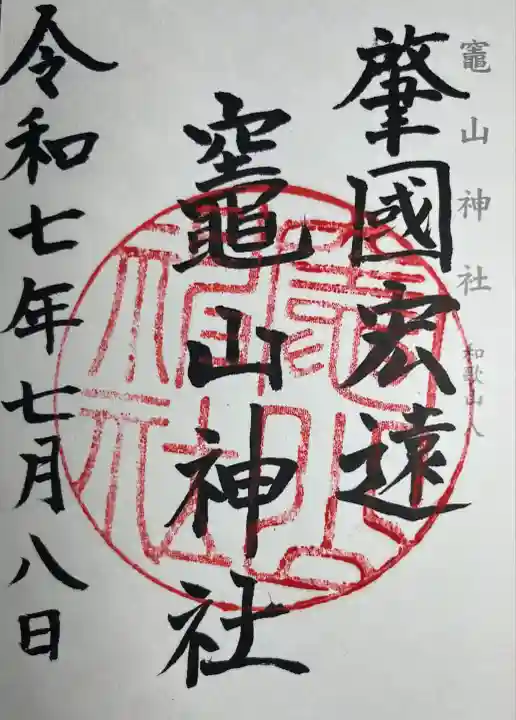 竈山神社 和歌山
肇國宏遠
竈山神社
令和七年七月八日